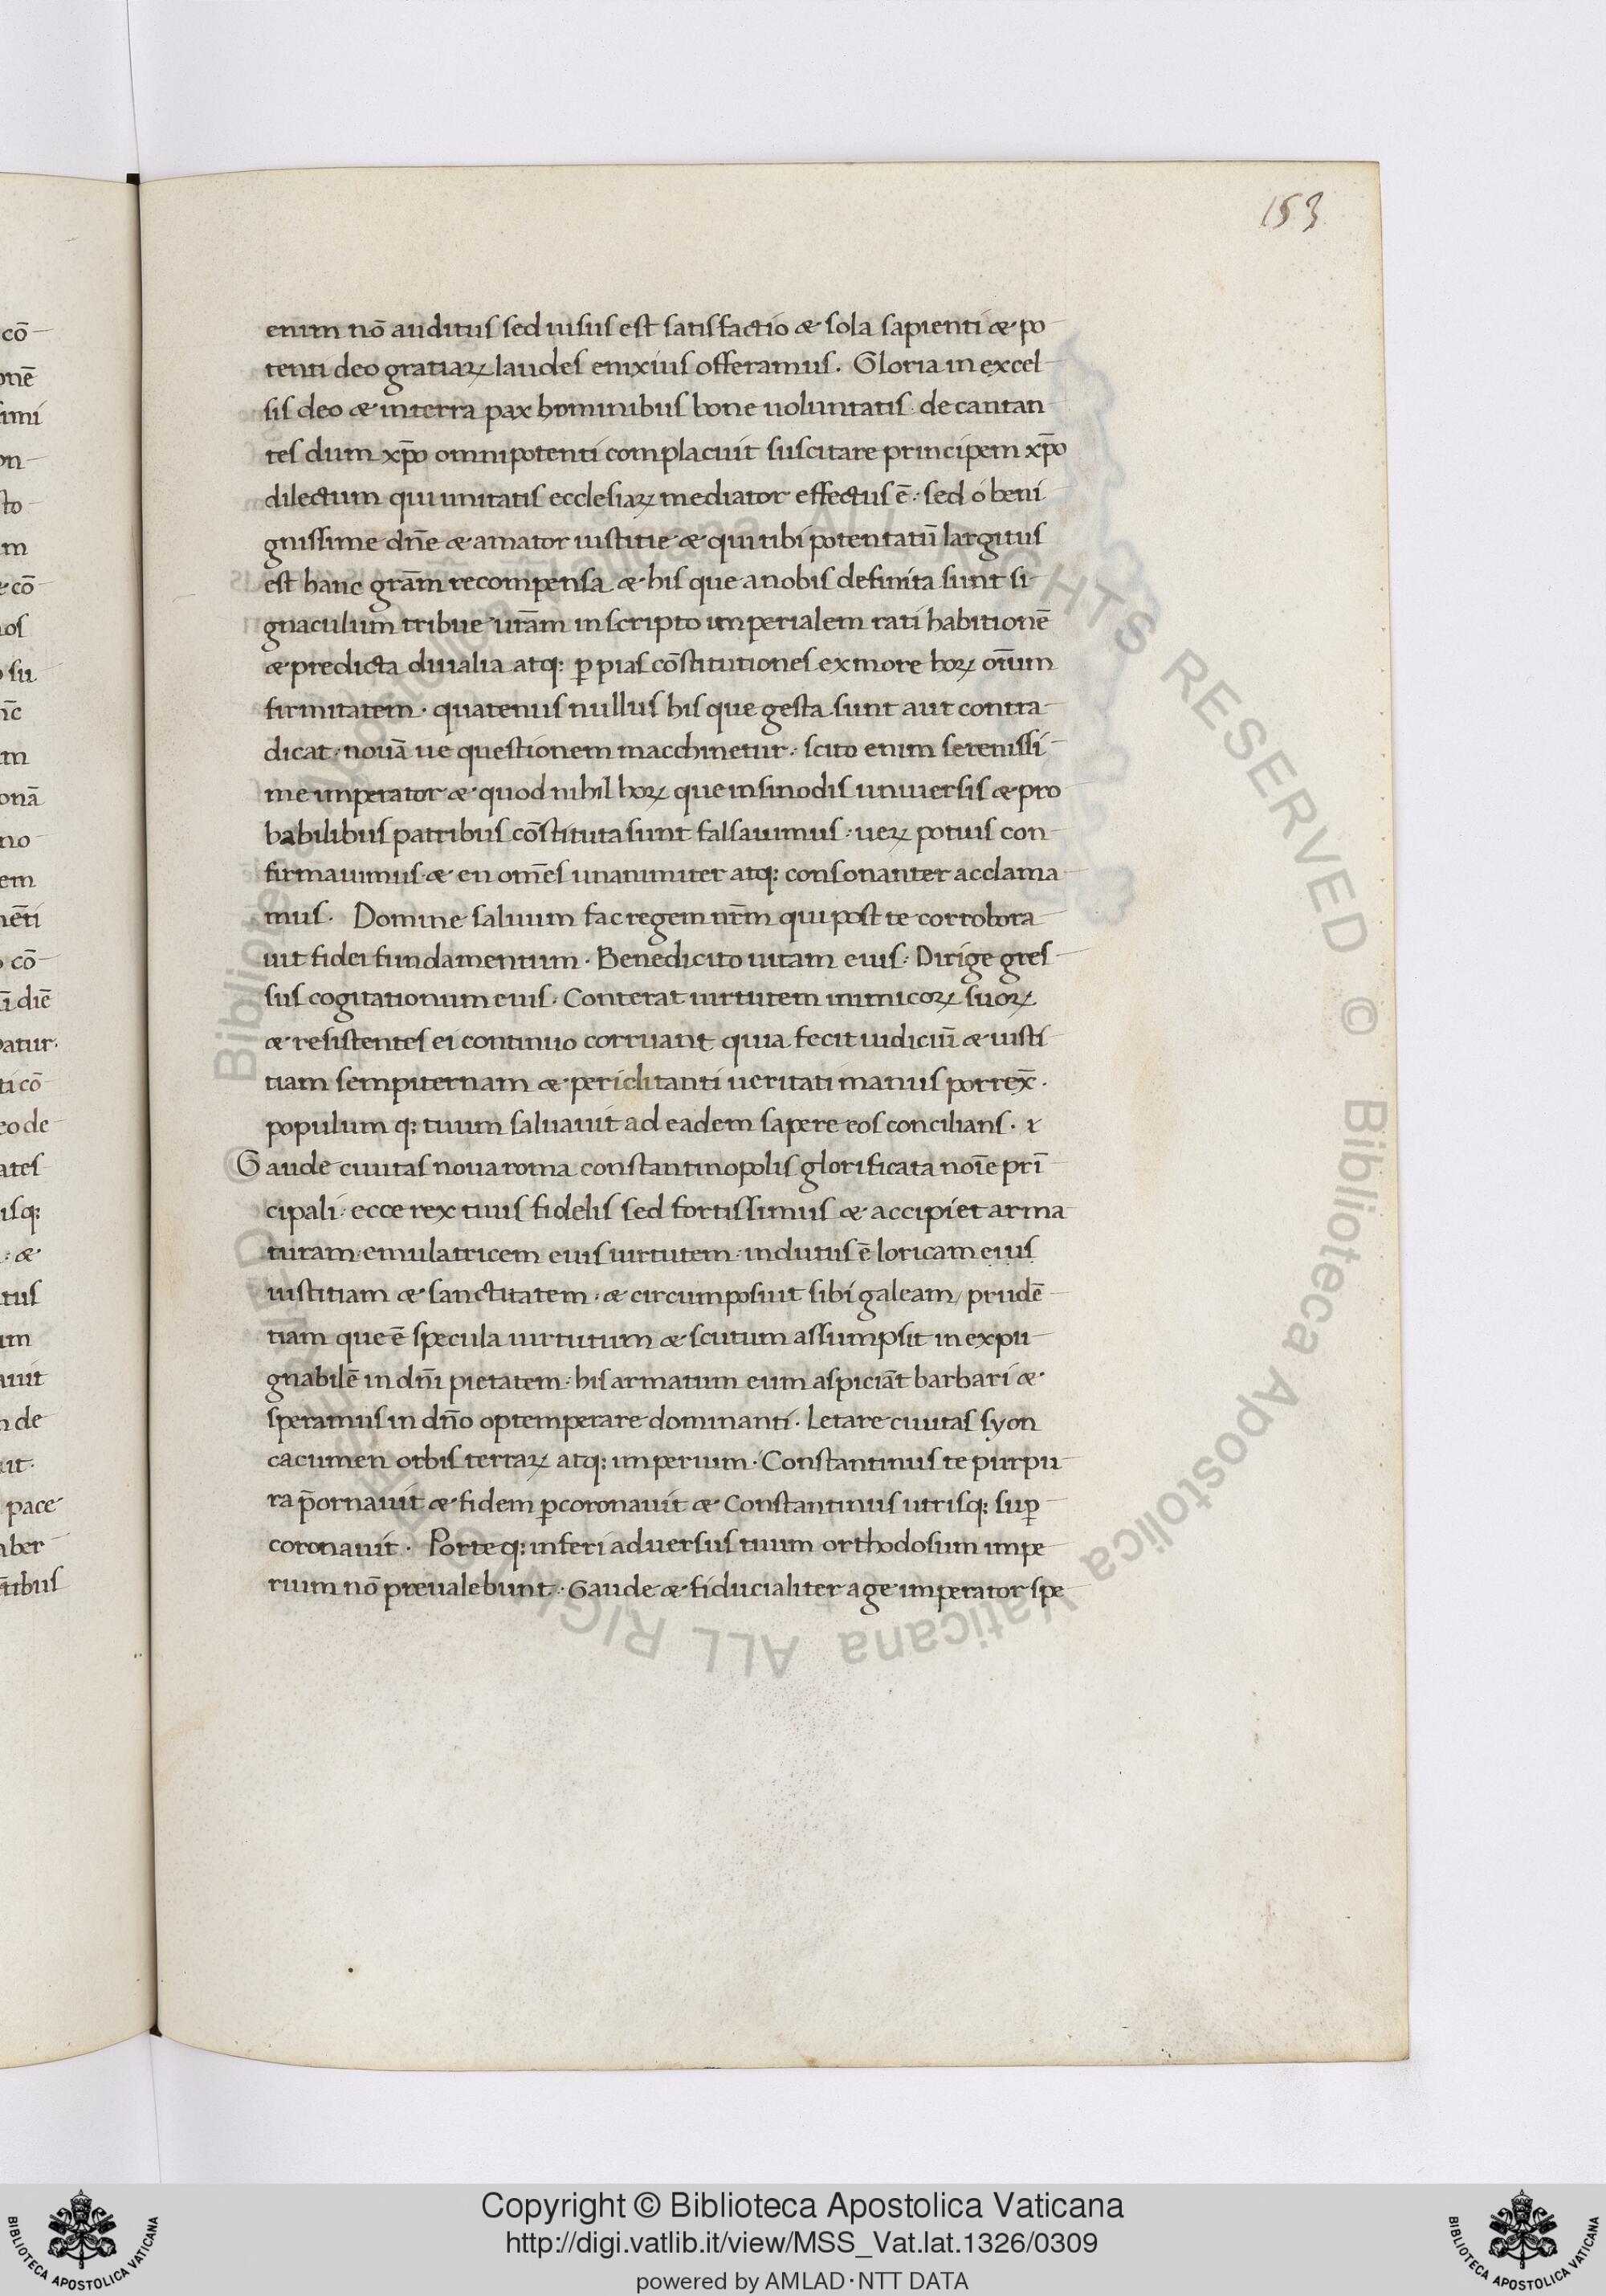 153
enim nō auditus sed uisus est satisfactio & sola sapienti & po
tenti deo gratiaꝝ laudes enixius offeramus. Gloria in excel
sis deo & interra pax hominibus bone uoluntatis. de cantan
tes dum xp̄o omnipotenti complacuit suscitare principem xp̄o
dilectum qui unitatis ecclesiaꝝ mediator effectus ē: sed o beni
gnissime dn̄e & amator iustitie & qui tibi potentatū largitus
est hanc grām recompensa & his que a nobis definita sunt si
gnaculum tribue ur̄am inscripto imperialem rati habitionē
& predicta diuialia atq: ꝑ pias cōstitutiones ex more hoꝝ oīum
firmitatem. quatenus nullus his que gesta sunt aut contra
dicat. nouā ue questionem macchinetur. scito enim serenissi
me imperator & quod nihil hoꝝ que in sinodis uniuersis & pro
babilibus patribus cōstituta sunt falsauimus. ueꝝ potuis con
firmauimus & en om̄es unanimiter atq: consonanter acclama
mus. Domine saluum fac regem nr̄m qui post te corrobora
uit fidei fundamentum. Benedicito uitam eius: Dirige gres
sus cogitationum eius. Conterat uirtutem inimicoꝝ suoꝝ
& resistentes ei continuo corruant quia fecit iudiciū & iusti
tiam sempiternam & periclitanti ueritati manus porrex̄.
populum q: tuum saluauit ad eadem sapere eos concilians.
Gaude ciuitas noua roma constantinopolis glorificata noīe prī
cipali. ecce rex tuus fidelis sed fortissimus & accipiet arma
turam emulatricem eius uirtutem. indutus ē loricam eius
iustitiam & sanctitatem. & circumposuit sibi galeam/ prudē
tiam que ē specula uirtutum & scutum assumpsit in expu
gnabilē in dn̄i pietatem: his armatum eum aspiciāt barbari &
speramus in dn̄o optemperare dominanti. Letare ciuitas syon
cacumen orbis terraꝝ atq: imperium. Constantinus te purpu
ra p̄ornauit & fidem ꝑcoronauit & Constantinus utrisq: suꝑ
coronauit. Porte q: inferi aduersus tuum orthodosum impe
rium nō preualebunt. Gaude & fiducialiter age imperator spe
Copyright © Biblioteca Apostolica Vaticana
http://digi.vatlib.it/view/MSS_Vat.lat.1326/0309
powered by AMLAD·NTT DATA
BIBLIOTECA APOSTOLICA VATICANA
BIBLIOTECA APOSTOLICA VATICANA